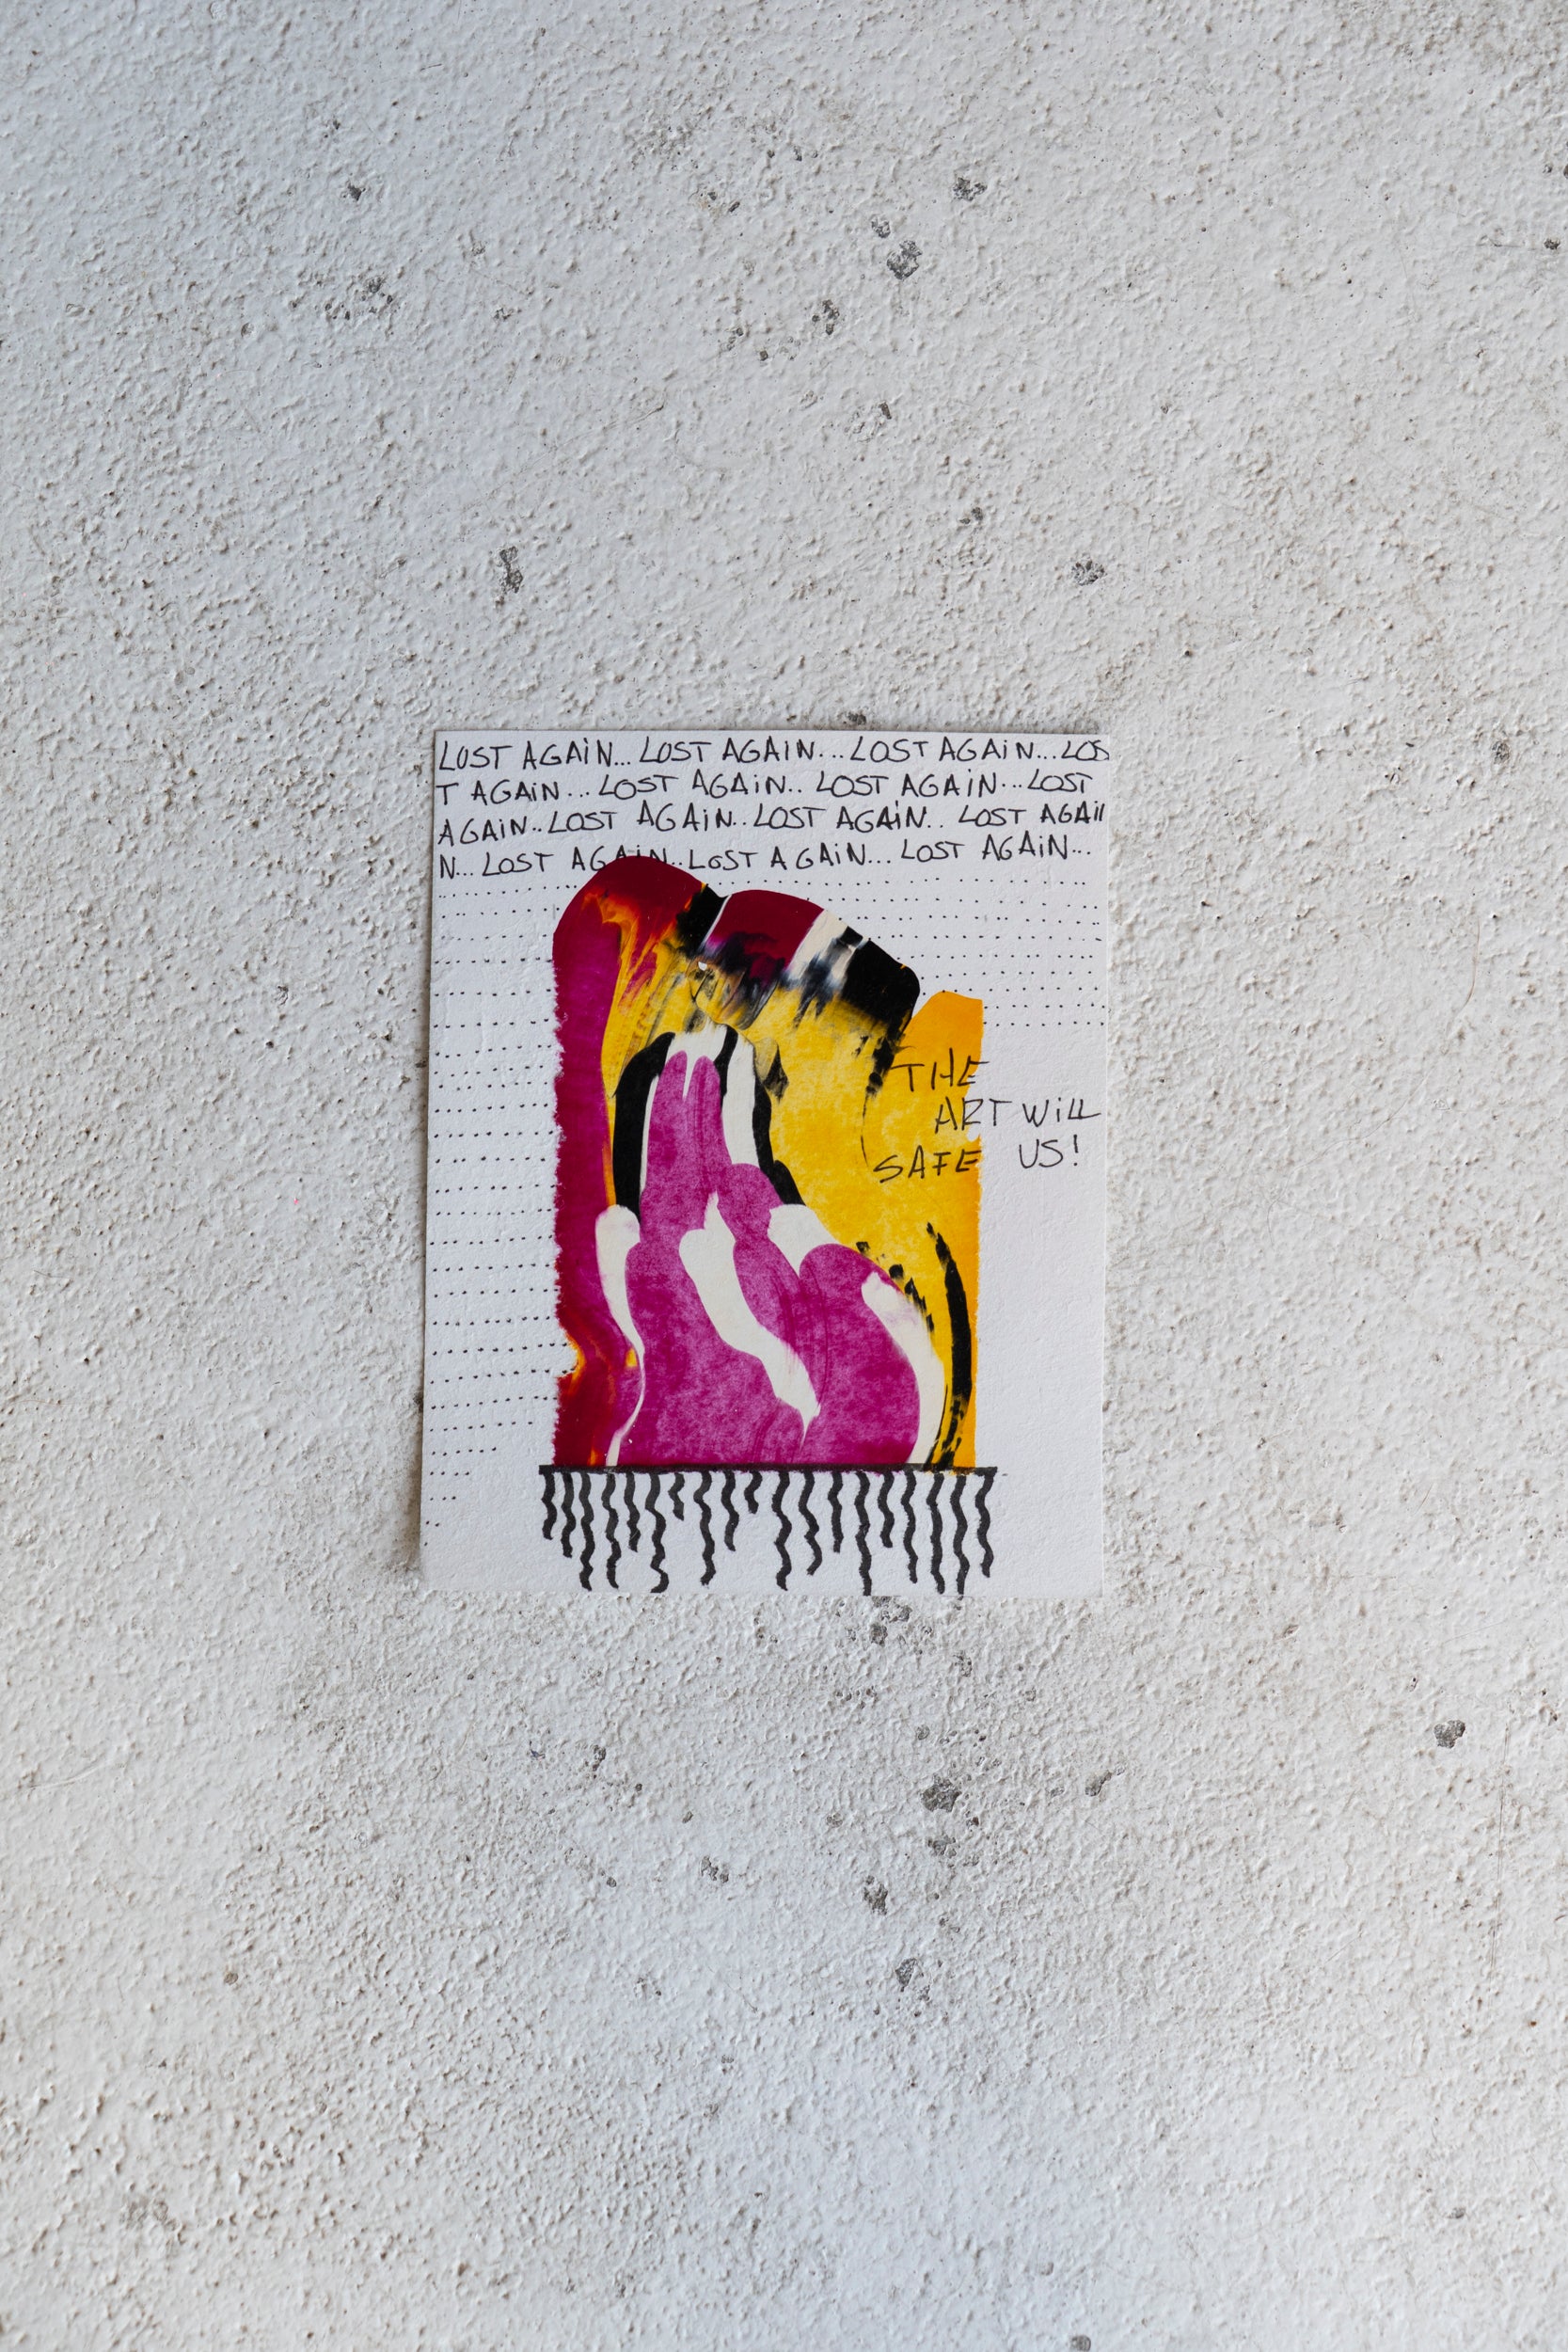 LOST AGAiN... LOST AGAiN... LOST AGAiN... LOS
T AGAiN... LOST AGAiN.. LOST AGAiN... LOST
AGAiN.. LOST AGAiN.. LOST AGAiN.. LOST AGAiI
N... LOST AGAiN.. LOST AGAiN... LOST AGAiN...
THE
ART WiLL
SAFE US!